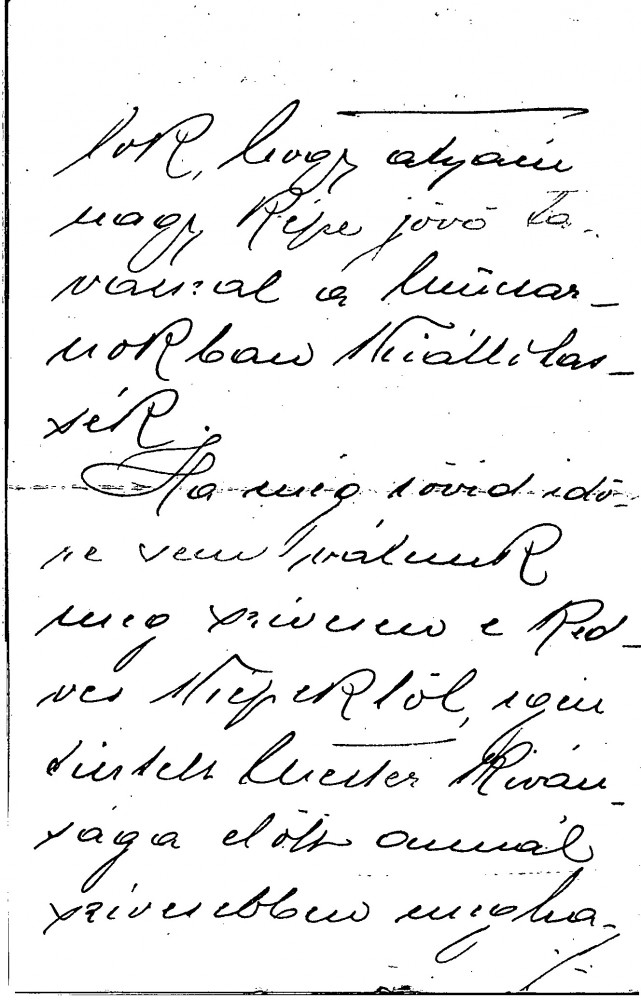 tok, hogy atyám
nagy képe jövő ta-
vaszal a műcsar-
nokban kiállítas-
sék.
Ha még rövid idő-
re sem válunk
meg szivesen e ked-
ves képektől, igen
tisztelt Mester kíván-
sága előtt annál
szivesebben megha-